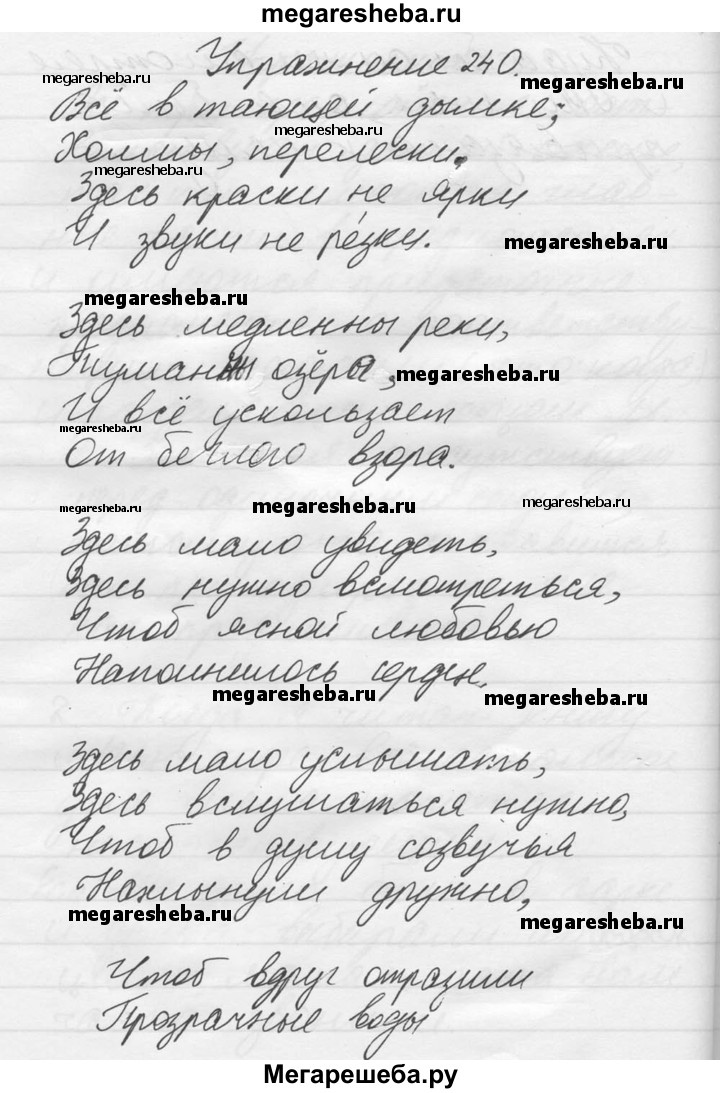 megaresheba.ru
Упражнение 240.
megaresheba.ru
Всё в тающей дымке;
megaresheba.ru
Холмы, перелески.
megaresheba.ru
Здесь краски не ярки
И звуки не ре́зки.
megaresheba.ru
megaresheba.ru
Здесь медленны реки,
Туманны озёра,
megaresheba.ru
И всё ускользает
megaresheba.ru
От беглого взора.
megaresheba.ru
megaresheba.ru
megaresheba.ru
Здесь мало увидеть,
Здесь нужно всмотреться,
Чтоб ясной любовью
Наполнилось сердце.
megaresheba.ru
megaresheba.ru
Здесь мало услышать,
Здесь вслушаться нужно,
Чтоб в душу созвучья
Нахлынули дружно,
megaresheba.ru
megaresheba.ru
Чтоб вдруг отразили
Прозрачные воды
Мегарешеба.ру